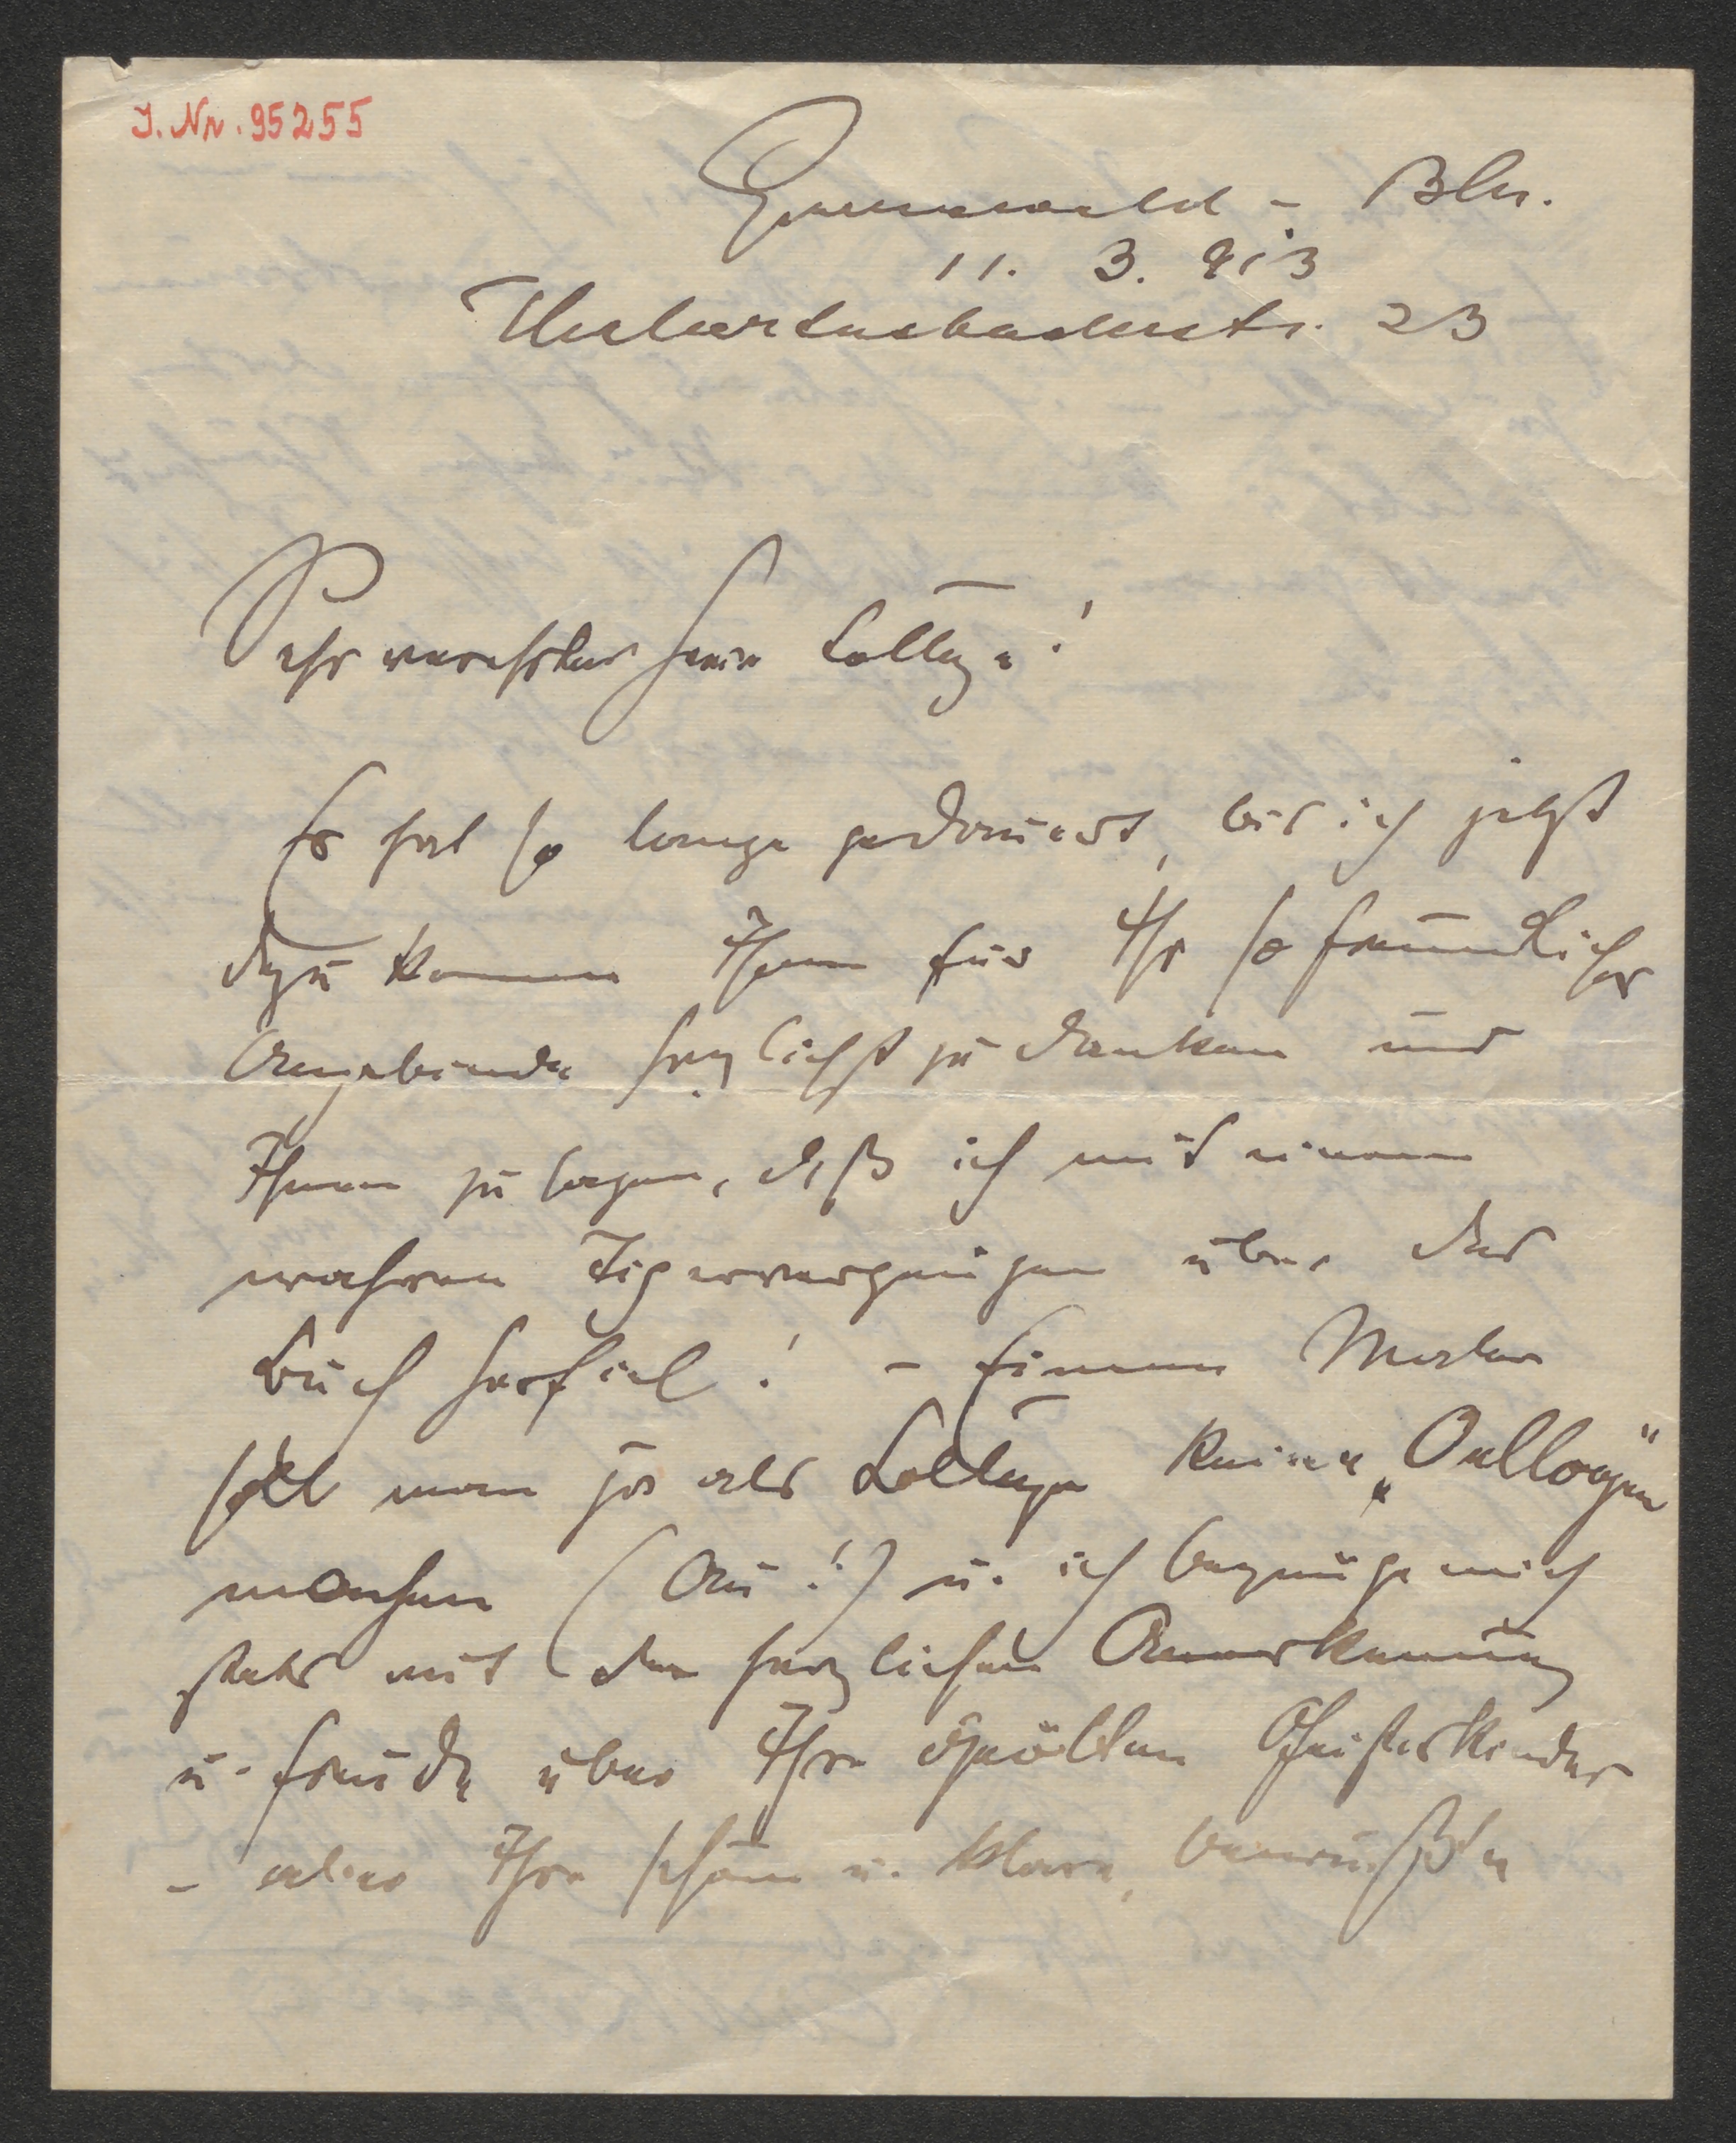 J. Nr. 95255
Grunewald - Bln.
11. 3. 913
Hubertusbaderstr. 23
Sehr verehrter Herr Collega!
Es hat so lange gedauert, bis ich jetzt
dazu komme Ihnen für Ihr so freundliches
Angebinde herzlichst zu danken und
Ihnen zu sagen, daß ich mit einem
wahren Tigervergnügen über das
Buch herfiel! - Einem Maler
soll man ja als Collega keine „Oellogen"
machen (Au!) u. ich begnüge mich
stets mit der herzlichen Anerkennung
u. Freude über Ihre Geisterkinder
- über Ihre schöne u. klare, bewußte